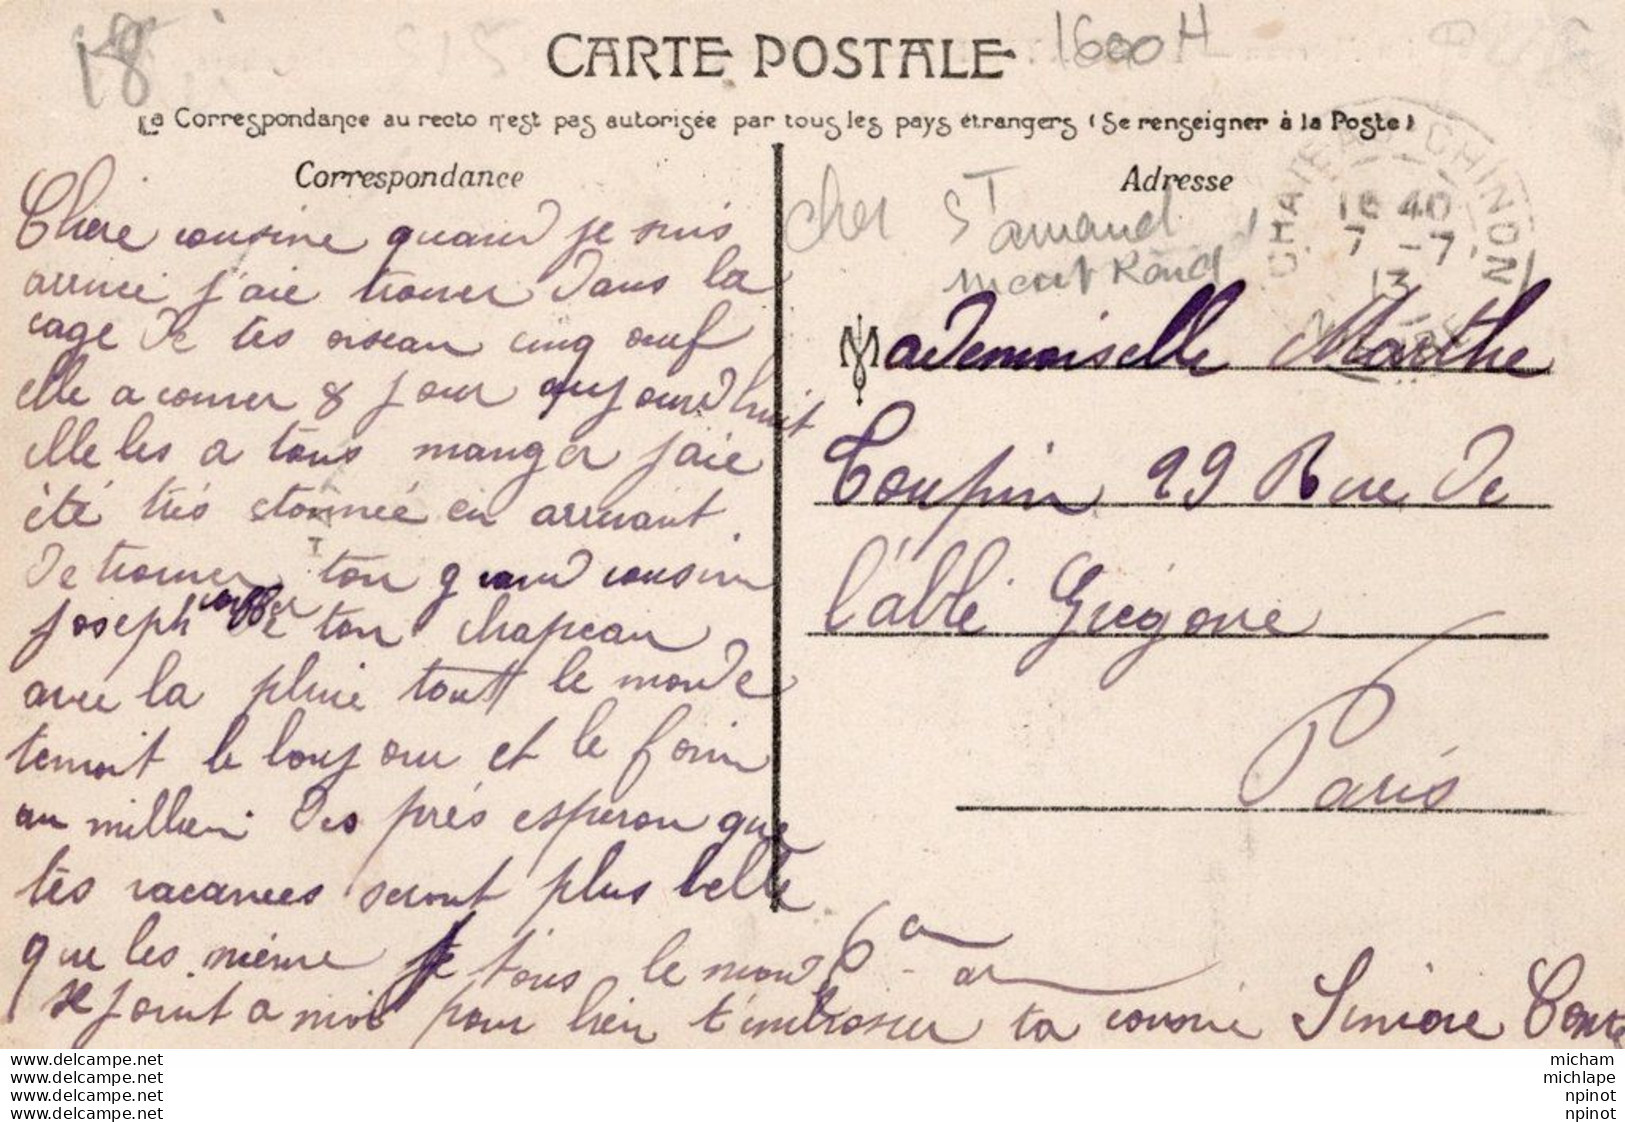 18
CARTE POSTALE
1600 H
La Correspondance au recto n'est pas autorisée par tous les pays étrangers (Se renseigner à la Poste)
Correspondance
Chère cousine quand je suis
arrivée j'aie trouver dans la
cage de tes oiseau cinq oeuf
elle a couver 8 jour aujourd'huit
elle les a tous manger j'aie
été très étonnée en arrivant
de trouver ton grand cousin
joseph coiffer de ton chapeau
avec la pluie toutt le monde
tenait le loujour et le foin
au millieu des prés esperon que
tes vacances seront plus belle
que les même je tous le monde
se joint a moi pour bien t'embrasser ta cousine
Adresse
Cher St Amand
Mont Rond
CHATEAU-CHINON
16 40
7 -7
13
Mademoiselle Marthe
Toupin 29 Rue de
l'abbé Grégoire
Paris
delcampe.net
delcampe.net
delcampe.net
delcampe.net
micham
michlape
npinot
npinot